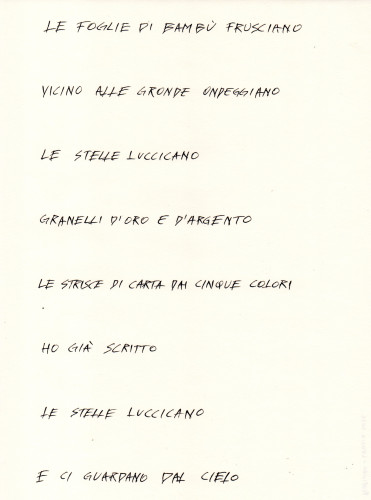 LE FOGLIE DI BAMBÙ FRUSCIANO
VICINO ALLE GRONDE ONDEGGIANO
LE STELLE LUCCICANO
GRANELLI D'ORO E D'ARGENTO
LE STRISCE DI CARTA DAI CINQUE COLORI
HO GIÀ SCRITTO
LE STELLE LUCCICANO
E CI GUARDANO DAL CIELO